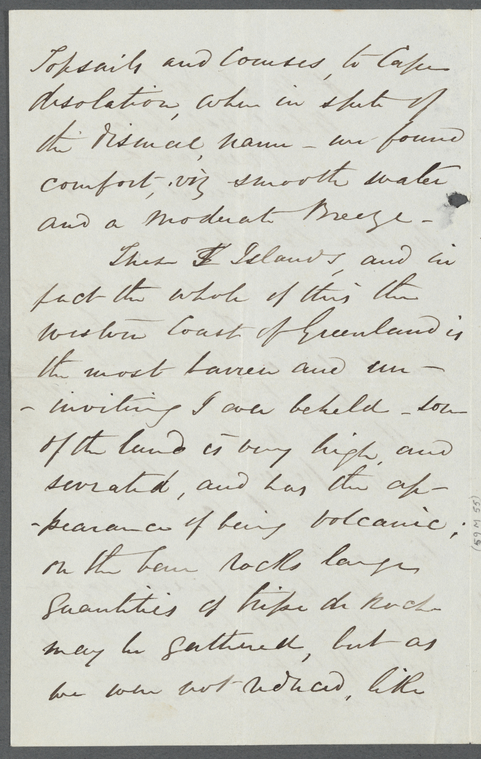 Topsails and Courses, to Cape
desolation, when in spite of
the dismal name - we found
comfort, viz smooth water
and a Moderate Breeze -
These Islands, and in
fact the whole of this the
western Coast of Greenland is
the most barren and un-
-inviting I ever beheld - some
of the land is very high, and
serrated, and has the ap-
-pearance of being volcanic;
on the bare rocks large
quantities of tripe de Roche
may be gathered, but as
we were not reduced, like
(59 M 55)